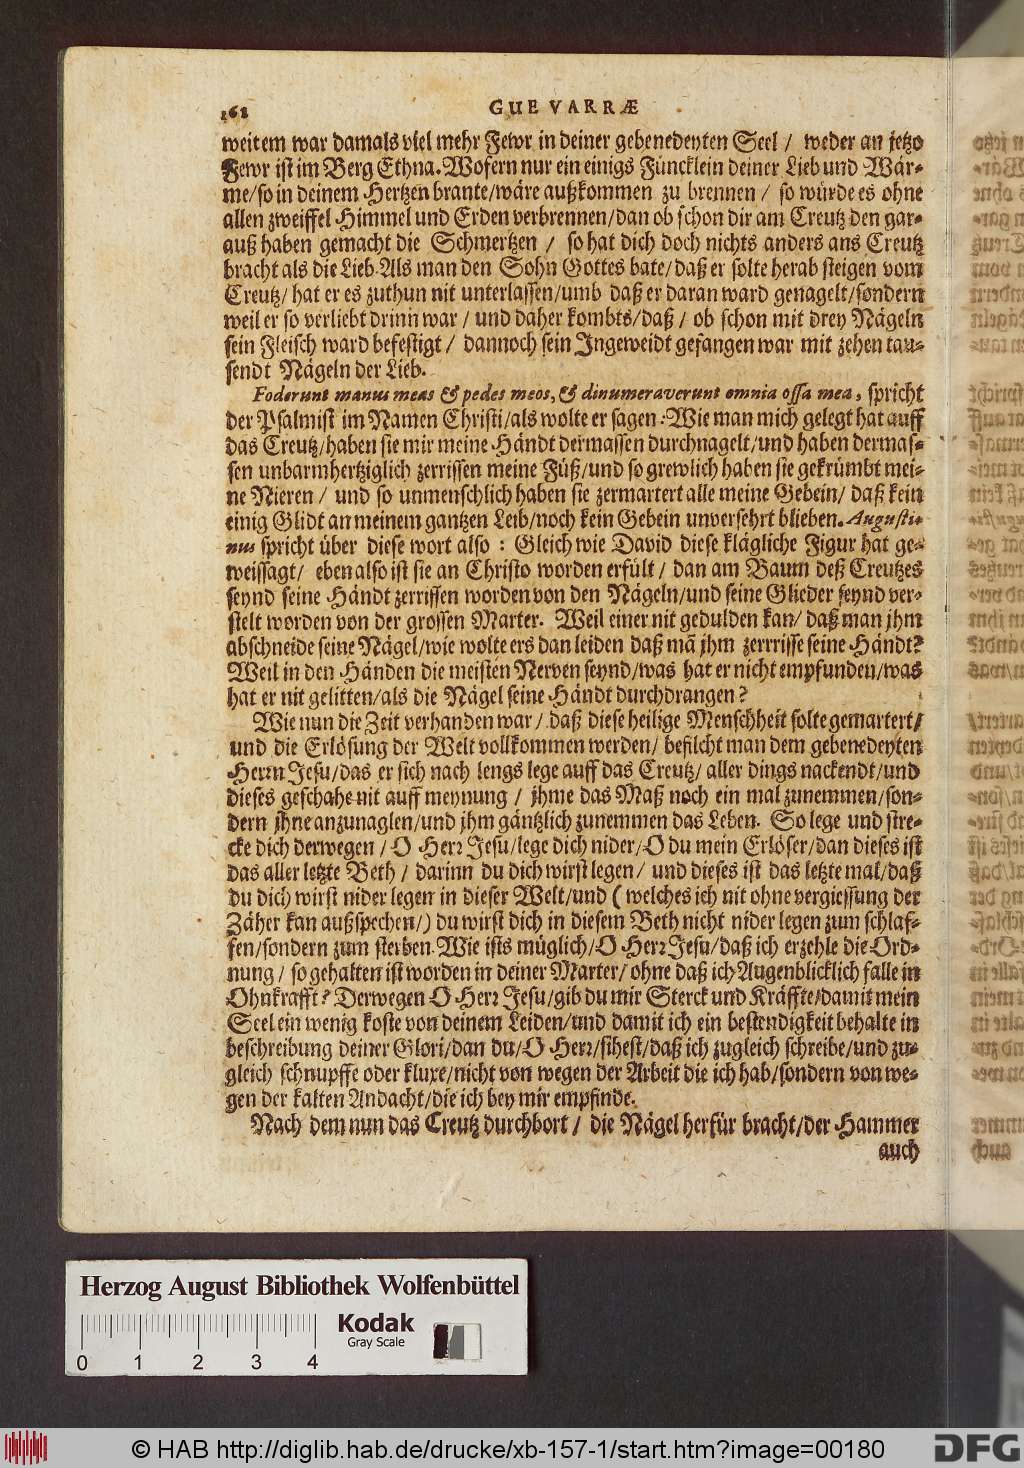 162
GUEVARRÆ
weitem war damals viel mehr Fewr in deiner gebenedeyten Seel / weder an jetzo
Fewr ist im Berg Ethna. Wofern nur ein einigs Füncklein deiner Lieb und Wär-
me/so in deinem Hertzen brante/wäre außkommen zu brennen / so würde es ohne
allen zweiffel Himmel und Erden verbrennen/dan ob schon dir am Creutz den gar-
auß haben gemacht die Schmertzen / so hat dich doch nichts anders ans Creutz
bracht als die Lieb. Als man den Sohn Gottes bate/daß er solte herab steigen vom
Creutz/ hat er es zuthun nit unterlassen/umb daß er daran ward genagelt/sondern
weil er so verliebt drinn war / und daher kombts/daß / ob schon mit drey Nägeln
sein Fleisch ward befestigt / dannoch sein Ingeweidt gefangen war mit zehen tau-
sendt Nägeln der Lieb.
Foderunt manus meas & pedes meos, & dinumeraverunt omnia ossa mea, spricht
der Psalmist im Namen Christi/als wolte er sagen. Wie man mich gelegt hat auff
das Creutz/haben sie mir meine Händt dermassen durchnagelt/und haben dermas-
sen unbarmhertziglich zerrissen meine Füß/und so grewlich haben sie gekrümbt mei-
ne Nieren / und so unmenschlich haben sie zermartert alle meine Gebein/ daß kein
einig Glidt an meinem gantzen Leib/noch kein Gebein unversehrt blieben. Augusti-
nus spricht über diese wort also : Gleich wie David diese klägliche Figur hat ge-
weissagt/ eben also ist sie an Christo worden erfült / dan am Baum deß Creutzes
seynd seine Händt zerrissen worden von den Nägeln/und seine Glieder seynd ver-
stelt worden von der grossen Marter. Weil einer nit gedulden kan/ daß man jhm
abschneide seine Nägel/wie wolte ers dan leiden daß mã jhm zerrrisse seine Händt?
Weil in den Händen die meisten Nerven seynd/was hat er nicht empfunden/was
hat er nit gelitten/als die Nägel seine Händt durchdrangen?
Wie nun die Zeit verhanden war / daß diese heilige Menschheit solte gemartert/
und die Erlösung der Welt vollkommen werden/ befilcht man dem gebenedeyten
Herrn Jesu/das er sich nach lengs lege auff das Creutz/ aller dings nackendt/und
dieses geschahe nit auff meynung / jhme das Maß noch ein mal zunemmen/son-
dern jhne anzunaglen/und jhm gäntzlich zunemmen das Leben. So lege und stre-
cke dich derwegen / O Herr Jesu/lege dich nider/O du mein Erlöser/dan dieses ist
das aller letzte Beth / darinn du dich wirst legen / und dieses ist das letzte mal/daß
du dich wirst nider legen in dieser Welt/und ( welches ich nit ohne vergiessung der
Zäher kan außspechen/) du wirst dich in diesem Beth nicht nider legen zum schlaf-
fen/sondern zum sterben. Wie ists müglich/O Herr Jesu/daß ich erzehle die Ord-
nung / so gehalten ist worden in deiner Marter/ ohne daß ich Augenblicklich falle in
Ohnkrafft? Derwegen O Herr Jesu/gib du mir Sterck und Kräffte/damit mein
Seel ein wenig koste von deinem Leiden/und damit ich ein bestendigkeit behalte in
beschreibung deiner Glori/dan du/O Herr/sihest/daß ich zugleich schreibe/und zu-
gleich schnupffe oder kluxe/nicht von wegen der Arbeit die ich hab/sondern von we-
gen der kalten Andacht/die ich bey mir empfinde.
Nach dem nun das Creutz durchbort / die Nägel herfür bracht/der Hammer
auch
Herzog August Bibliothek Wolfenbüttel
Kodak
Gray Scale
0 1 2 3 4
© HAB http://diglib.hab.de/drucke/xb-157-1/start.htm?image=00180
DFG